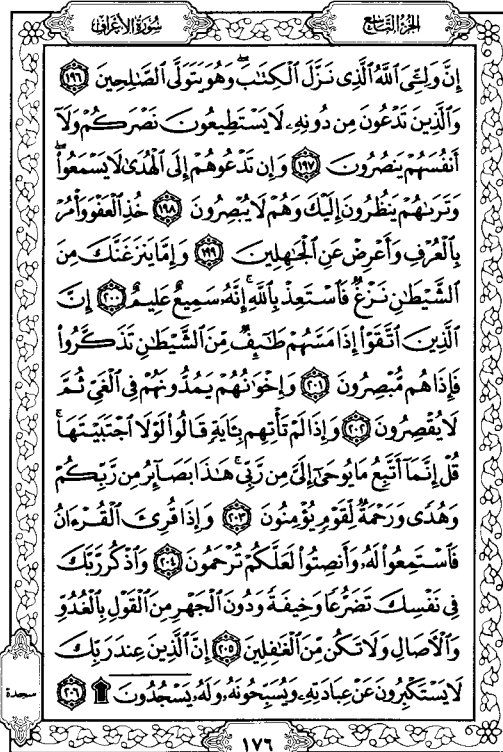 الجزء التاسع
سورة الأعراف
إِنَّ وَلِـِّۧيَ ٱللَّهُ ٱلَّذِي نَزَّلَ ٱلْكِتَٰبَ ۖ وَهُوَ يَتَوَلَّى ٱلصَّٰلِحِينَ ﴿١٩٦﴾
وَٱلَّذِينَ تَدْعُونَ مِن دُونِهِۦ لَا يَسْتَطِيعُونَ نَصْرَكُمْ وَلَآ
أَنفُسَهُمْ يَنصُرُونَ ﴿١٩٧﴾ وَإِن تَدْعُوهُمْ إِلَى ٱلْهُدَىٰ لَا يَسْمَعُوا۟ ۖ
وَتَرَىٰهُمْ يَنظُرُونَ إِلَيْكَ وَهُمْ لَا يُبْصِرُونَ ﴿١٩٨﴾ خُذِ ٱلْعَفْوَ وَأْمُرْ
بِٱلْعُرْفِ وَأَعْرِضْ عَنِ ٱلْجَٰهِلِينَ ﴿١٩٩﴾ وَإِمَّا يَنزَغَنَّكَ مِنَ
ٱلشَّيْطَٰنِ نَزْغٌ فَٱسْتَعِذْ بِٱللَّهِ ۚ إِنَّهُۥ سَمِيعٌ عَلِيمٌ ﴿٢٠٠﴾ إِنَّ
ٱلَّذِينَ ٱتَّقَوْا۟ إِذَا مَسَّهُمْ طَٰٓئِفٌ مِّنَ ٱلشَّيْطَٰنِ تَذَكَّرُوا۟
فَإِذَا هُم مُّبْصِرُونَ ﴿٢٠١﴾ وَإِخْوَٰنُهُمْ يَمُدُّونَهُمْ فِي ٱلْغَيِّ ثُمَّ
لَا يُقْصِرُونَ ﴿٢٠٢﴾ وَإِذَا لَمْ تَأْتِهِم بِـَٔايَةٍ قَالُوا۟ لَوْلَا ٱجْتَبَيْتَهَا ۚ
قُلْ إِنَّمَآ أَتَّبِعُ مَا يُوحَىٰٓ إِلَيَّ مِن رَّبِّي ۚ هَٰذَا بَصَآئِرُ مِن رَّبِّكُمْ
وَهُدًى وَرَحْمَةٌ لِّقَوْمٍ يُؤْمِنُونَ ﴿٢٠٣﴾ وَإِذَا قُرِئَ ٱلْقُرْءَانُ
فَٱسْتَمِعُوا۟ لَهُۥ وَأَنصِتُوا۟ لَعَلَّكُمْ تُرْحَمُونَ ﴿٢٠٤﴾ وَٱذْكُر رَّبَّكَ
فِي نَفْسِكَ تَضَرُّعًا وَخِيفَةً وَدُونَ ٱلْجَهْرِ مِنَ ٱلْقَوْلِ بِٱلْغُدُوِّ
وَٱلْءَاصَالِ وَلَا تَكُن مِّنَ ٱلْغَٰفِلِينَ ﴿٢٠٥﴾ إِنَّ ٱلَّذِينَ عِندَ رَبِّكَ
لَا يَسْتَكْبِرُونَ عَنْ عِبَادَتِهِۦ وَيُسَبِّحُونَهُۥ وَلَهُۥ يَسْجُدُونَ ۩ ﴿٢٠٦﴾
سجدة
١٧٦